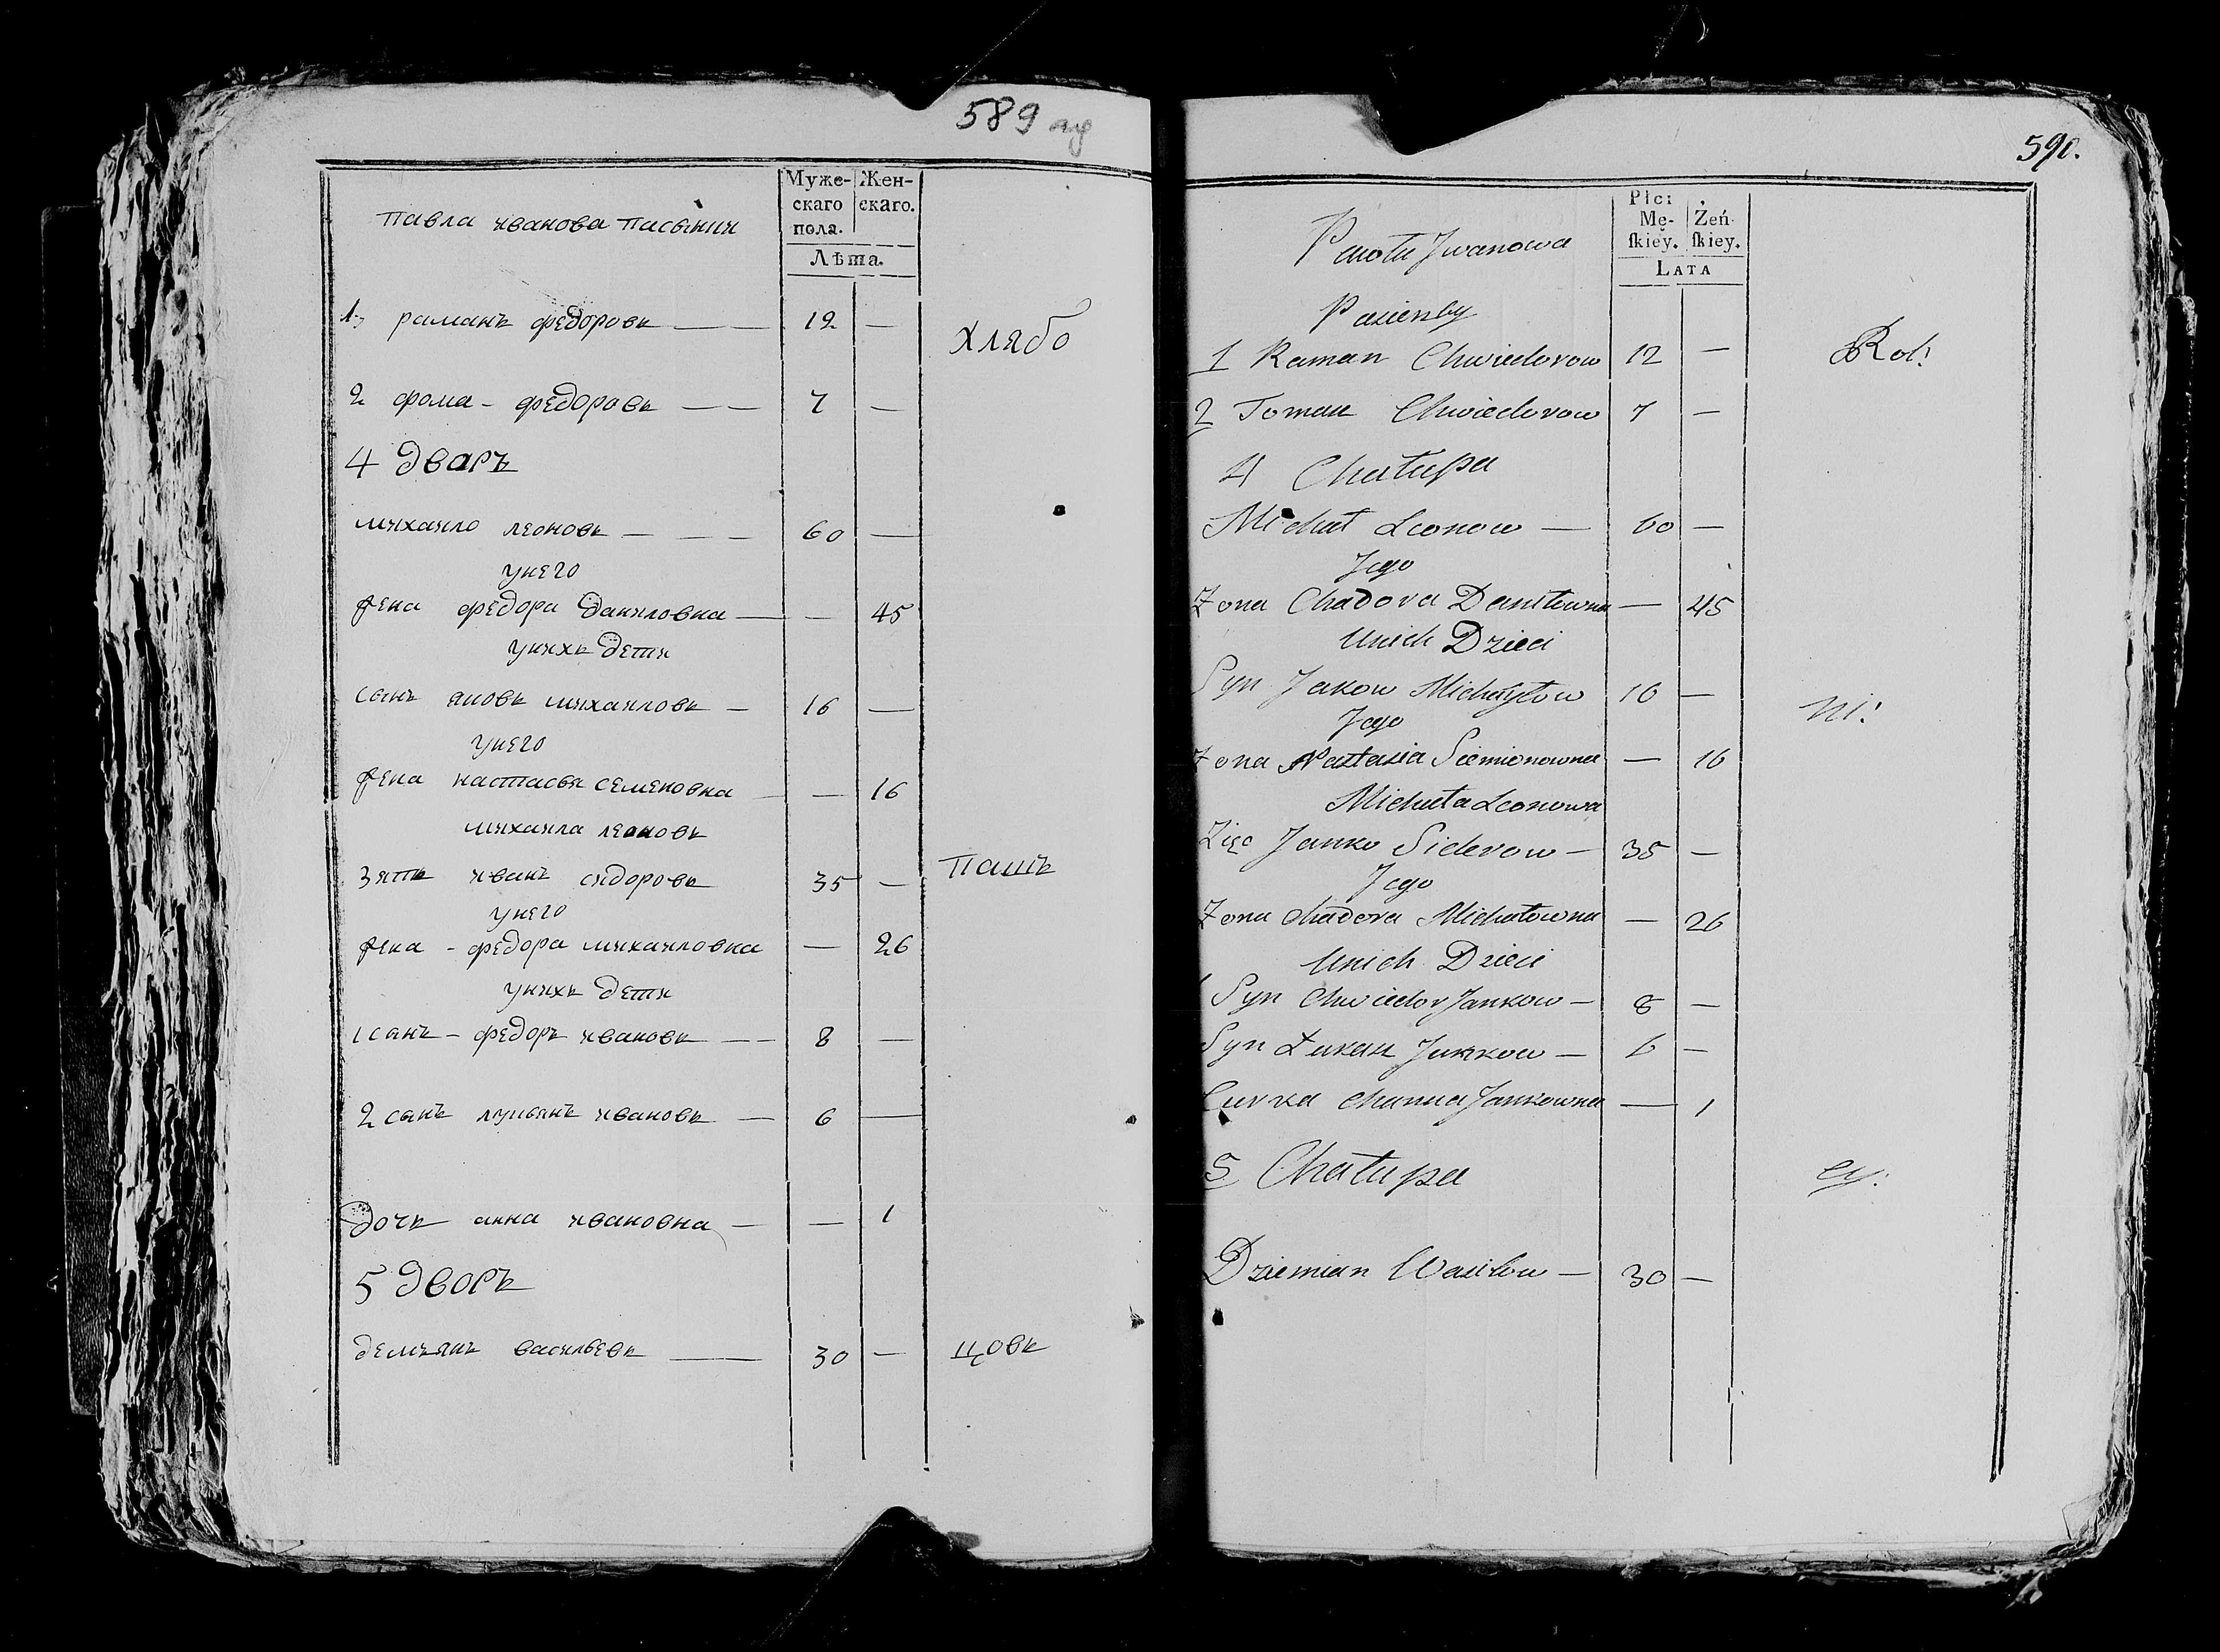 589
Муже-
скаго
пола.
Жен-
скаго.
Лѣта.
Павла иванова пасынки
1, раманъ федоровъ — 12 —
хлябо
2 фома - федоровъ — — 7 —
4 дваръ
михаило леоновъ — — — 60 —
унего
жена федора даниловна — — 45
унихъ дети
сынъ яковъ михаиловъ — 16 —
унего
жена настасья семеновна — — 16
михаила леоновъ
зять иванъ сидоровъ 35 —
пашъ
унего
жена - федора михаиловна — 26
унихъ дети
1 сынъ - федоръ ивановъ — — 8 —
2 сынъ лукьянъ ивановъ — 6 —
дочь анна ивановна — — 1
5 дворъ
демьянъ васильевъ — 30 —
цовъ
590.
Płci
Mę-
skiey.
Żeń-
skiey.
LATA
Pawła Jwanowa
Pasierby
1 Raman Chwiedorow 12 —
Rol:
2 Tomasz Chwiedorow 7 —
4 Chałupa
Michał Leonow — 60 —
Jego
Zona Chadora Daniłowna — 45
Unich Dzieci
Syn Jakow Michayłow 16 —
ni:
Jego
Zona Nastazia Siemionowna — 16
Michała Leonowa
Zięc Janko Siderow — 35 —
Jego
Zona Chadora Michałowna — 26
Unich Dzieci
1 Syn Chwiedor Jankow — 8 —
Syn Łukasz Jankow — 6 —
Curka Channa Jankowna — 1
5 Chałupa
cy:
Dziemian Wasilow — 30 —